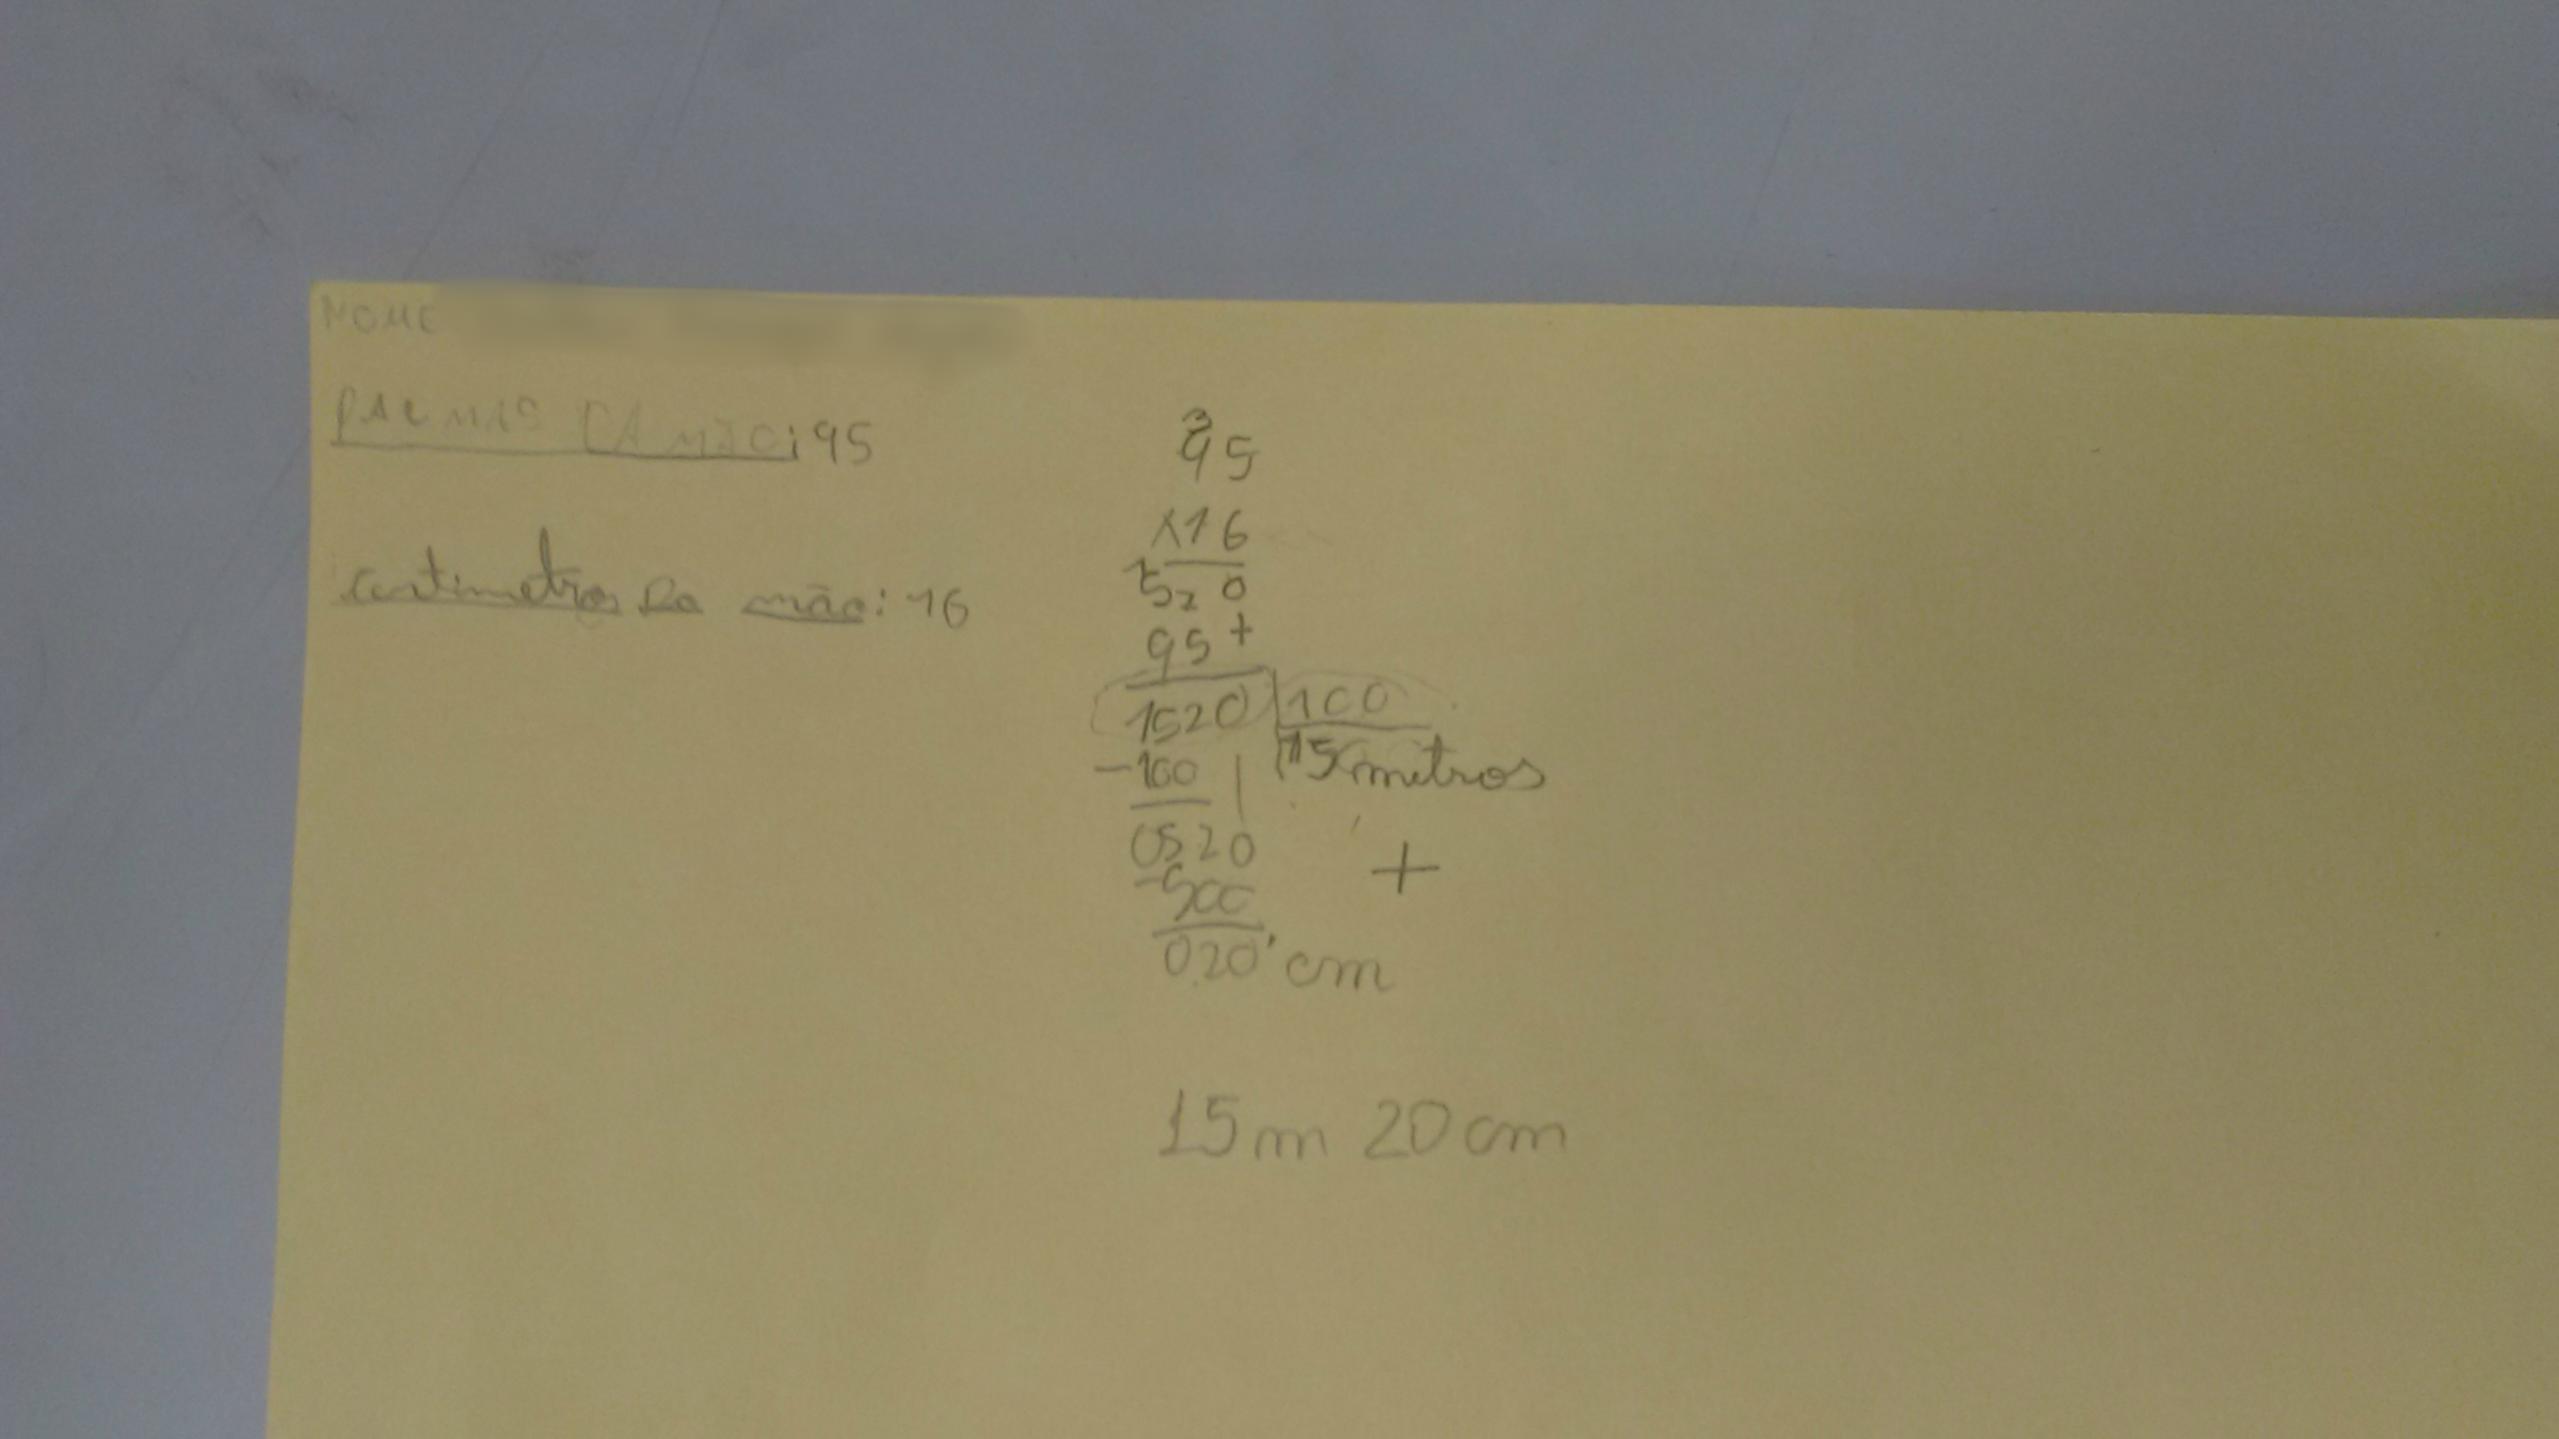 NOME
PALMAS DA MÃO: 95
centimetros da mão: 16
3
95
x16
1
520
95+
1520 100
-100 15 metros
0520 +
-500
020 cm
15m 20cm